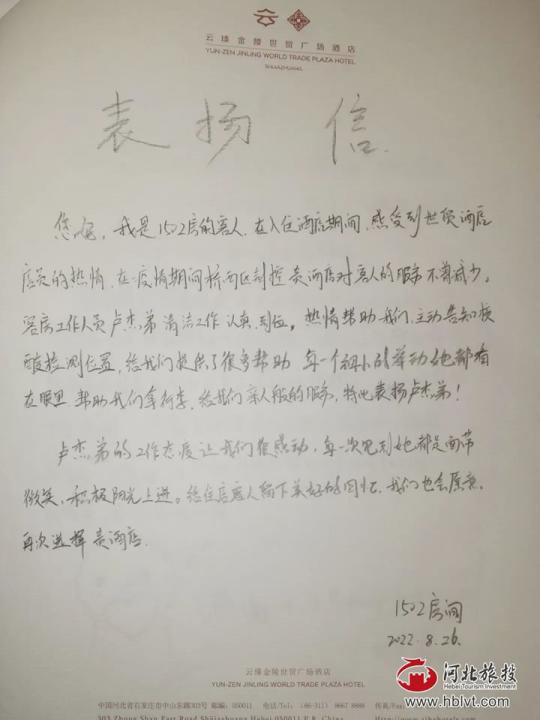 云瑧金陵世贸广场酒店
YUN-ZEN JINLING WORLD TRADE PLAZA HOTEL
SHIJIAZHUANG
表扬信
您好，我是1502房的客人，在入住酒店期间，感受到世贸酒店
店员的热情，在疫情期间桥西区封控贵酒店对客人的服务不曾减少，
客房工作人员卢杰弟清洁工作认真到位。热情帮助我们，主动告知核
酸检测位置，给我们提供了很多帮助 每一个细小的举动她都看
在眼里 帮助我们拿行李，给我们亲人般的服务，特此表扬卢杰弟！
卢杰弟的工作态度让我们很感动，每一次见到她都是面带
微笑，积极阳光上进。给住店客人留下美好的回忆，我们也会
再次选择贵酒店.
1502房间
2022.8.26.
云瑧金陵世贸广场酒店
YUN-ZEN JINLING WORLD TRADE PLAZA HOTEL
中国河北省石家庄市中山东路303号 邮编：050011 电话/Tel：(86-311) 8667 8888 传真/Fax
303 Zhong Shan East Road Shijiazhuang Hebei 050011 P.R. China http://www
河北旅投
Hebei Tourism Investment
www.hblvt.com